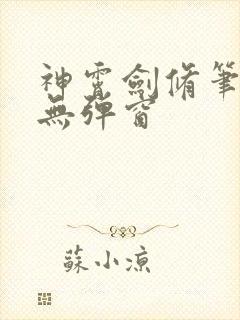 神霄劍脩筆
無彈窗
蘇小涼